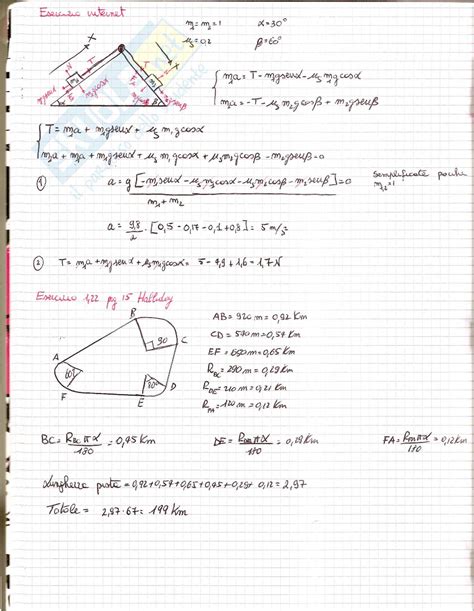 Esercizio internet
m₁=m₂=1 α=30°
μs=0,2 β=60°
m₁a = T - m₁g senα - μs m₁g cosα
m₂a = -T - μs m₂g cosβ + m₂g senβ
T = m₁a + m₁g senα + μs m₁g cosα
m₂a + m₁a + m₁g senα + μs m₁g cosα + μs m₂g cosβ - m₂g senβ = 0
① a = g [-m₁senα - μs m₁cosα - μs m₂cosβ - m₂senβ] = 0
m₁ + m₂
Semplificate poiché
m₁,₂=1
a = 9,8/2 · [0,5 - 0,17 - 0,1 + 0,8] = 5 m/s²
② T = m₁a + m₁g senα + μs m₁g cosα = 5 - 4,9 + 1,6 = 1,7 N
Esercizio 1,22 pg 15 Halliday
AB = 920 m = 0,92 Km
CD = 540 m = 0,54 Km
EF = 650 m = 0,65 Km
R_BC = 290 m = 0,29 Km
R_DE = 210 m = 0,21 Km
R_FA = 120 m = 0,12 Km
A B C D E F
90
60°
80°
BC = R_BC π α / 180 = 0,45 Km
DE = R_DE π α / 180 = 0,29 Km
FA = R_FA π α / 180 = 0,12 Km
Lunghezza pista = 0,92 + 0,54 + 0,65 + 0,45 + 0,29 + 0,12 = 2,97
Totale = 2,97 · 67 = 199 Km